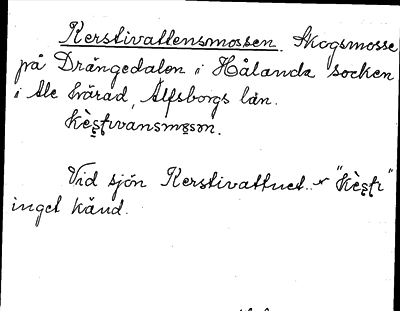 Kerstivattensmossen. Skogsmosse
på Drängedalen i Hålanda socken
i Ale härad, Älfsborgs län.
kèʂtɩvansmɷsən.
Vid sjön Kerstivattnet. "kèʂtɩ"
inget känd.